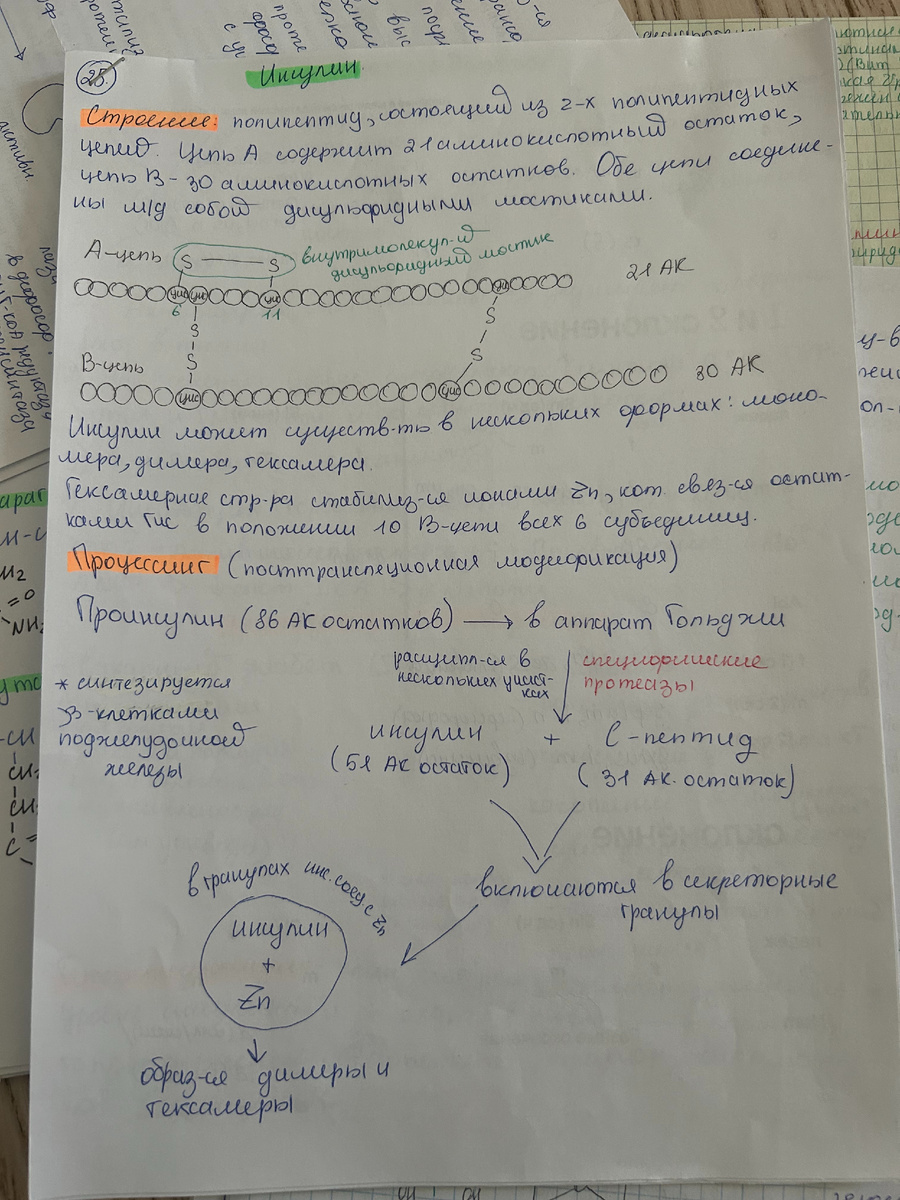 25.
Инсулин
Строение: полипептид, состоящий из 2-х полипептидных
цепей. Цепь А содержит 21 аминокислотный остаток,
цепь В - 30 аминокислотных остатков. Обе цепи соедине-
ны м/д собой дисульфидными мостиками.
А-цепь S — S внутримолекул-й
дисульфидный мостик
21 АК
цис цис цис цис
6 11
S S
S S
В-цепь
цис цис 30 АК
Инсулин может существ-ть в нескольких формах: моно-
мера, димера, гексамера.
Гексамерная стр-ра стабилиз-ся ионами Zn, кот. связ-ся остат-
ками Гис в положении 10 В-цепи всех 6 субъединиц.
Процессинг (посттрансляционная модификация)
Проинсулин (86 АК остатков) → в аппарат Гольджи
расщепл-ся в
нескольких участ-
ках
специфические
протеазы
* синтезируется
β-клетками
поджелудочной
железы
инсулин + С-пептид
(51 АК остаток) (31 АК. остаток)
включаются в секреторные
гранулы
в гранулах инс. соед с Zn
инсулин
+
Zn
образ-ся димеры и
гексамеры